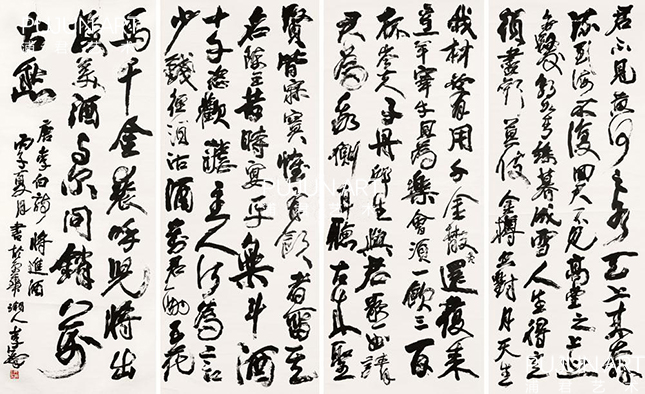 君不见黄河之水天上来奔
流到海不復回又不见高堂之上
朝如青絲暮成雪人生得意
須盡歡莫使金樽空對月天生
我材必有用千金散盡還復来
烹羊宰牛且為樂會須一飲三百
杯岑夫子丹邱生與君歌一曲請
君為我側耳聽古来聖
賢皆寂寞惟有飲者留其
名陳王昔時宴平樂斗酒
十千恣歡謔主人何為言
少錢徑須沽酒對君酌五花
馬千金裘呼兒將出
換美酒與爾同銷萬
古愁
唐李白詩將進酒
丙子夏月書於湖人李
PUJUN ART
浦君艺术